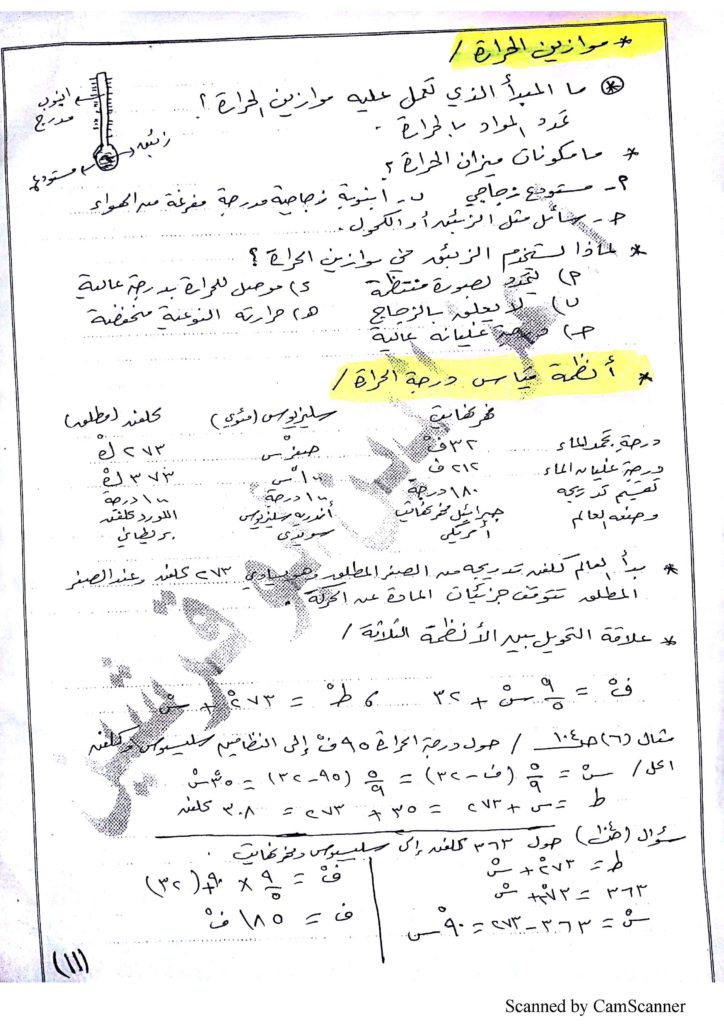 * موازين الحرارة /
* ما المبدأ الذي تعمل عليه موازين الحرارة ؟
تمدد المواد بالحرارة .
* ما مكونات ميزان الحرارة ؟
انبوب مدرج
زئبق
مستودع
أ- مستودع زجاجي ب- انبوبة زجاجية مدرجة مفرغة من الهواء
ج- سائل مثل الزئبق أو الكحول .
* لماذا يستخدم الزئبق في موازين الحرارة ؟
أ) يتمدد بصورة منتظمة د) موصل للحرارة بدرجة عالية
ب) لا يعلق بالزجاج هـ) حرارته النوعية منخفضة
جـ) درجة غليانه عالية
* أنظمة قياس درجة الحرارة /
فهرنهايت سليزيوس (مئوي) كلفن (مطلق)
درجة تجمد الماء ٣٢ ْف صفر ْس ٢٧٣ ْك
درجة غليان الماء ٢١٢ ف ١٠٠ ْس ٣٧٣ ْك
تقسيم تدريجه ١٨٠ درجة ١٠٠ درجة ١٠٠ درجة
وضعه العالم جبرائيل فهرنهايت أندريه سليزيوس اللورد كلفن
أمريكي سويدي بريطاني
* بدأ العالم كلفن تدريجه من الصفر المطلق وهو يساوي ٢٧٣ كلفن وعند الصفر
المطلق تتوقف جزيئات المادة عن الحركة .
* علاقة التحويل بين الأنظمة الثلاثة /
ف ْ = ٩/٥ س ْ + ٣٢ ، ط ْ = ٢٧٣ ْ + س ْ
مثال (٦) ص١٠٤ / حول درجة الحرارة ٩٥ ف ْ إلى النظامين سليسيوس وكلفن
الحل / س ْ = ٥/٩ (ف - ٣٢) = ٥/٩ (٩٥-٣٢) = ٣٥ ْس
ط = س + ٢٧٣ = ٣٥ + ٢٧٣ = ٣٠٨ كلفن
سؤال (ص١٠٤) حول ٣٦٣ كلفن إلى سليسيوس وفهرنهايت .
ط = ٢٧٣ ْ + س ْ
٣٦٣ = ٢٧٣ + س ْ
س ْ = ٣٦٣ - ٢٧٣ = ٩٠ ْ س
ف ْ = ٩/٥ × ٩٠ + (٣٢)
ف = ١٨٥ ف ْ
(١١)
Scanned by CamScanner